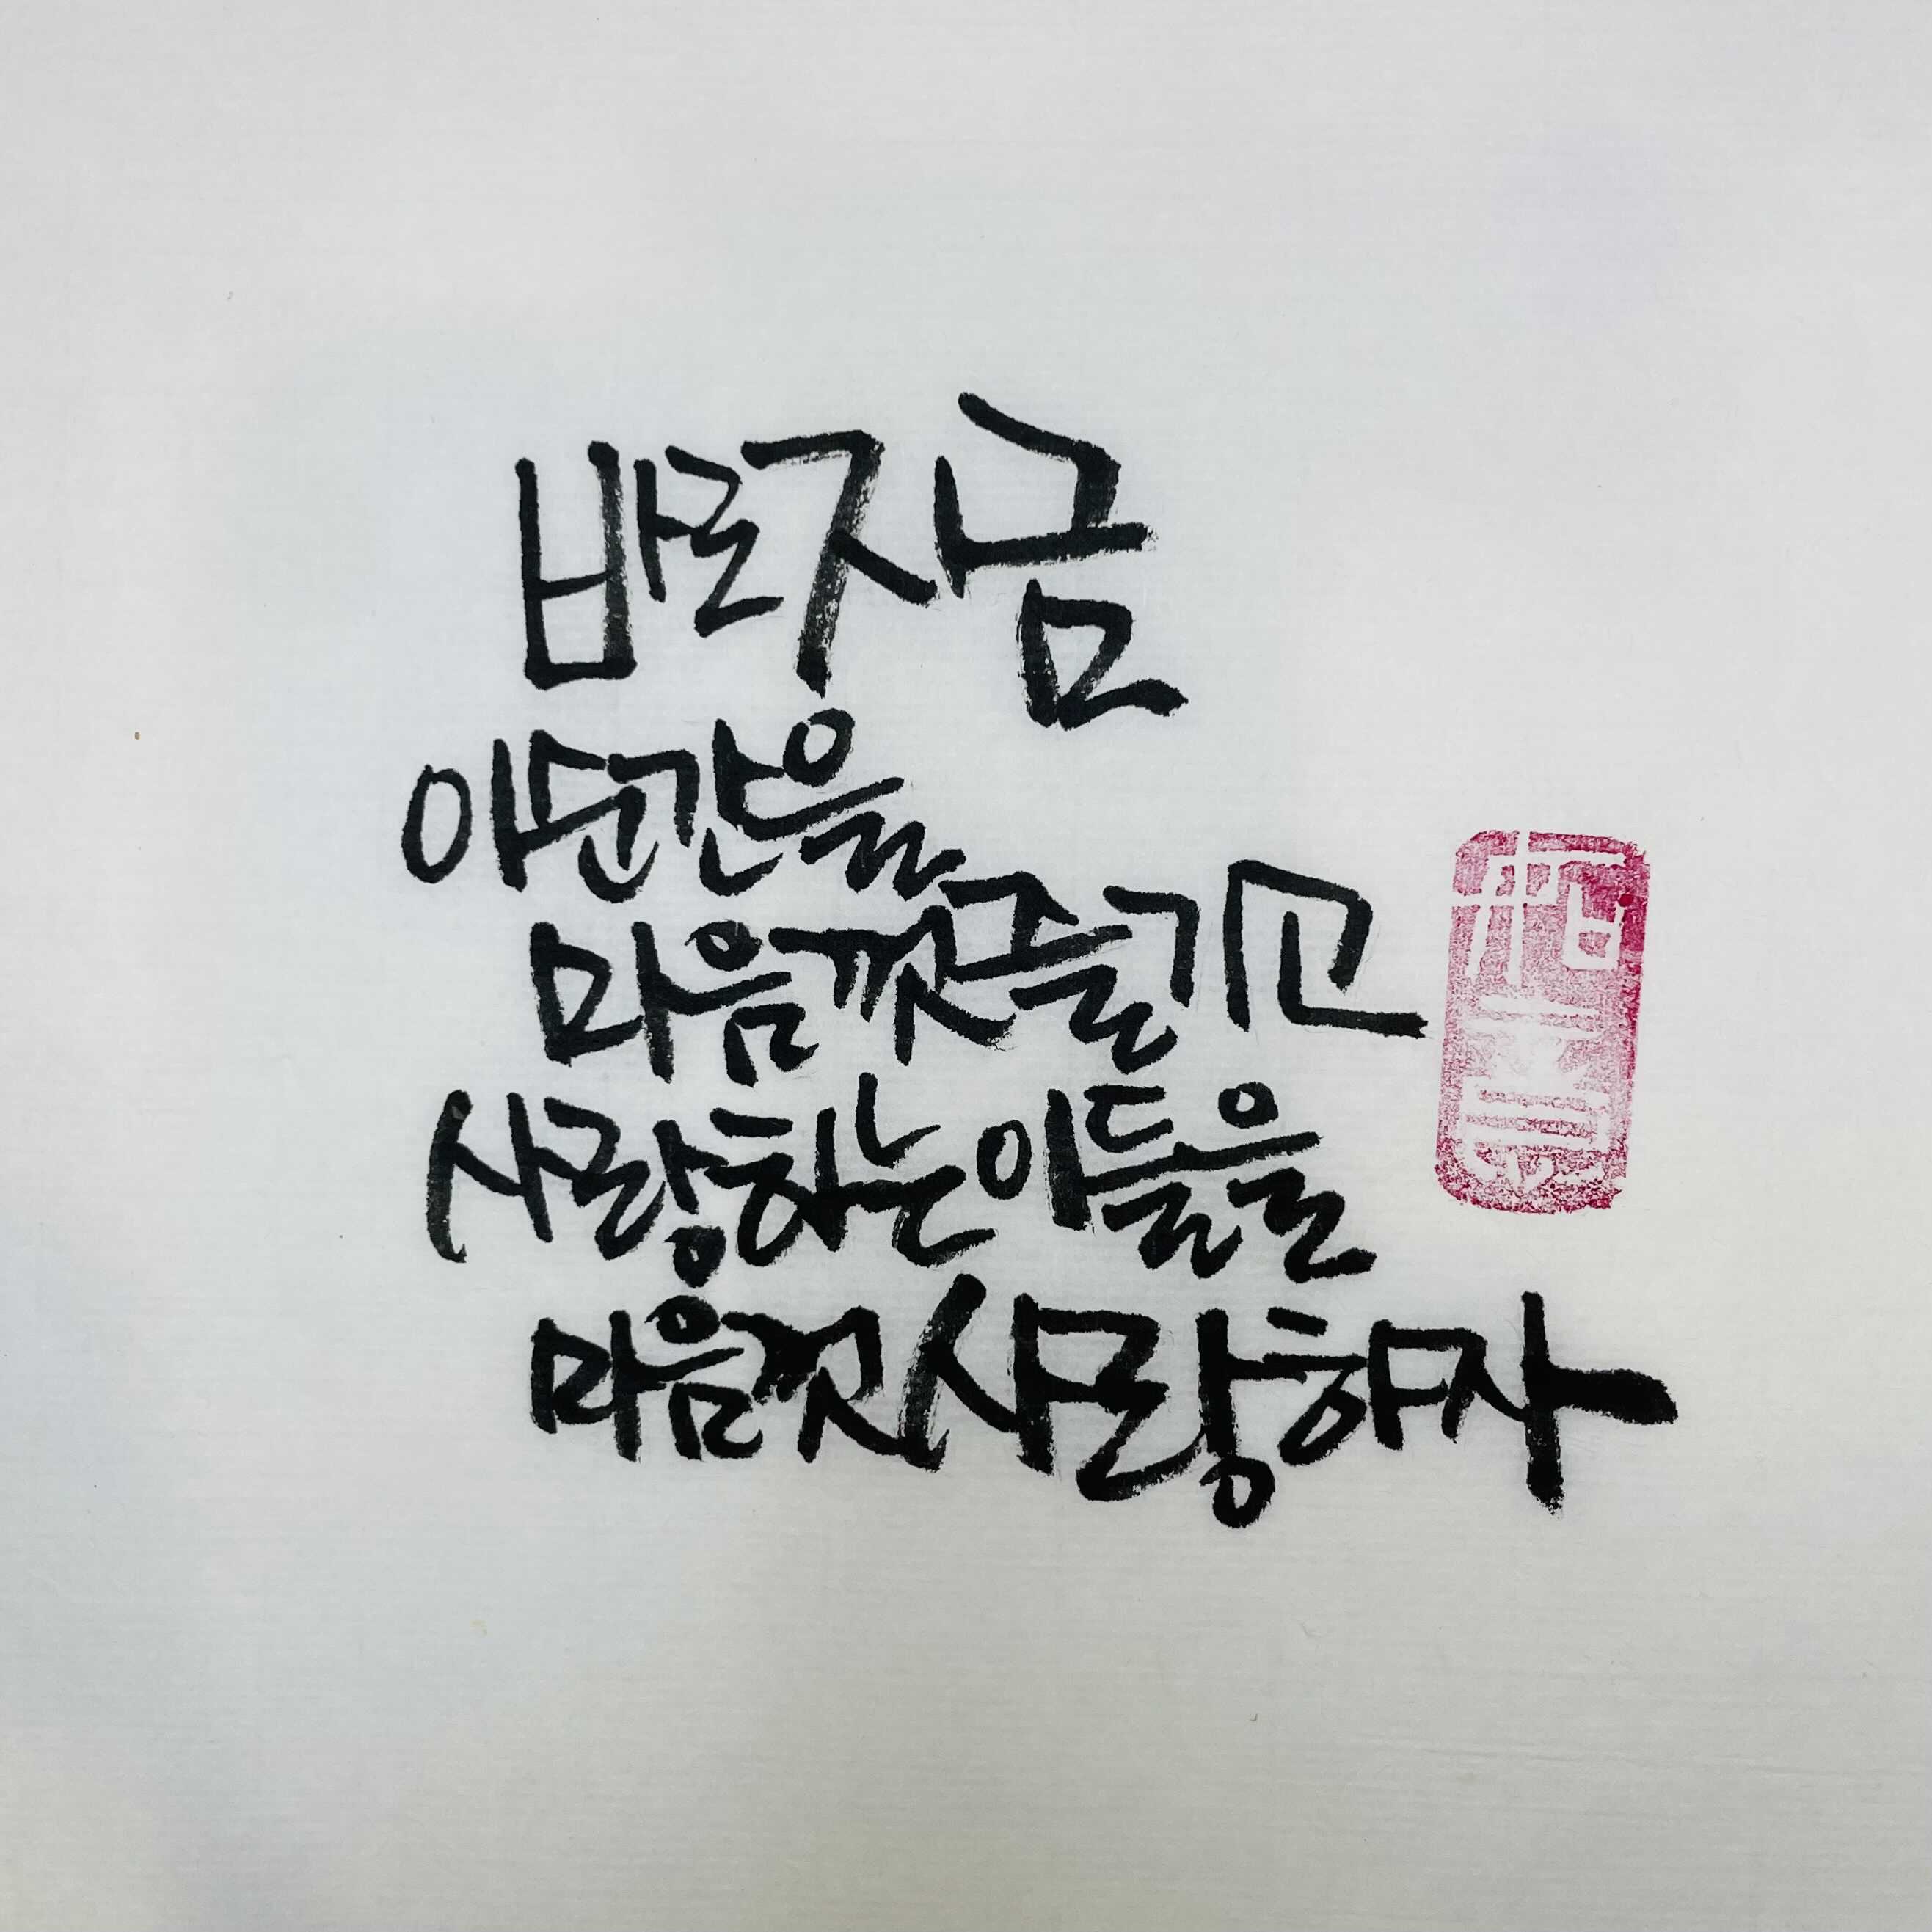 바로지금
이순간을
마음껏즐기고
사랑하는이들을
마음껏사랑하자